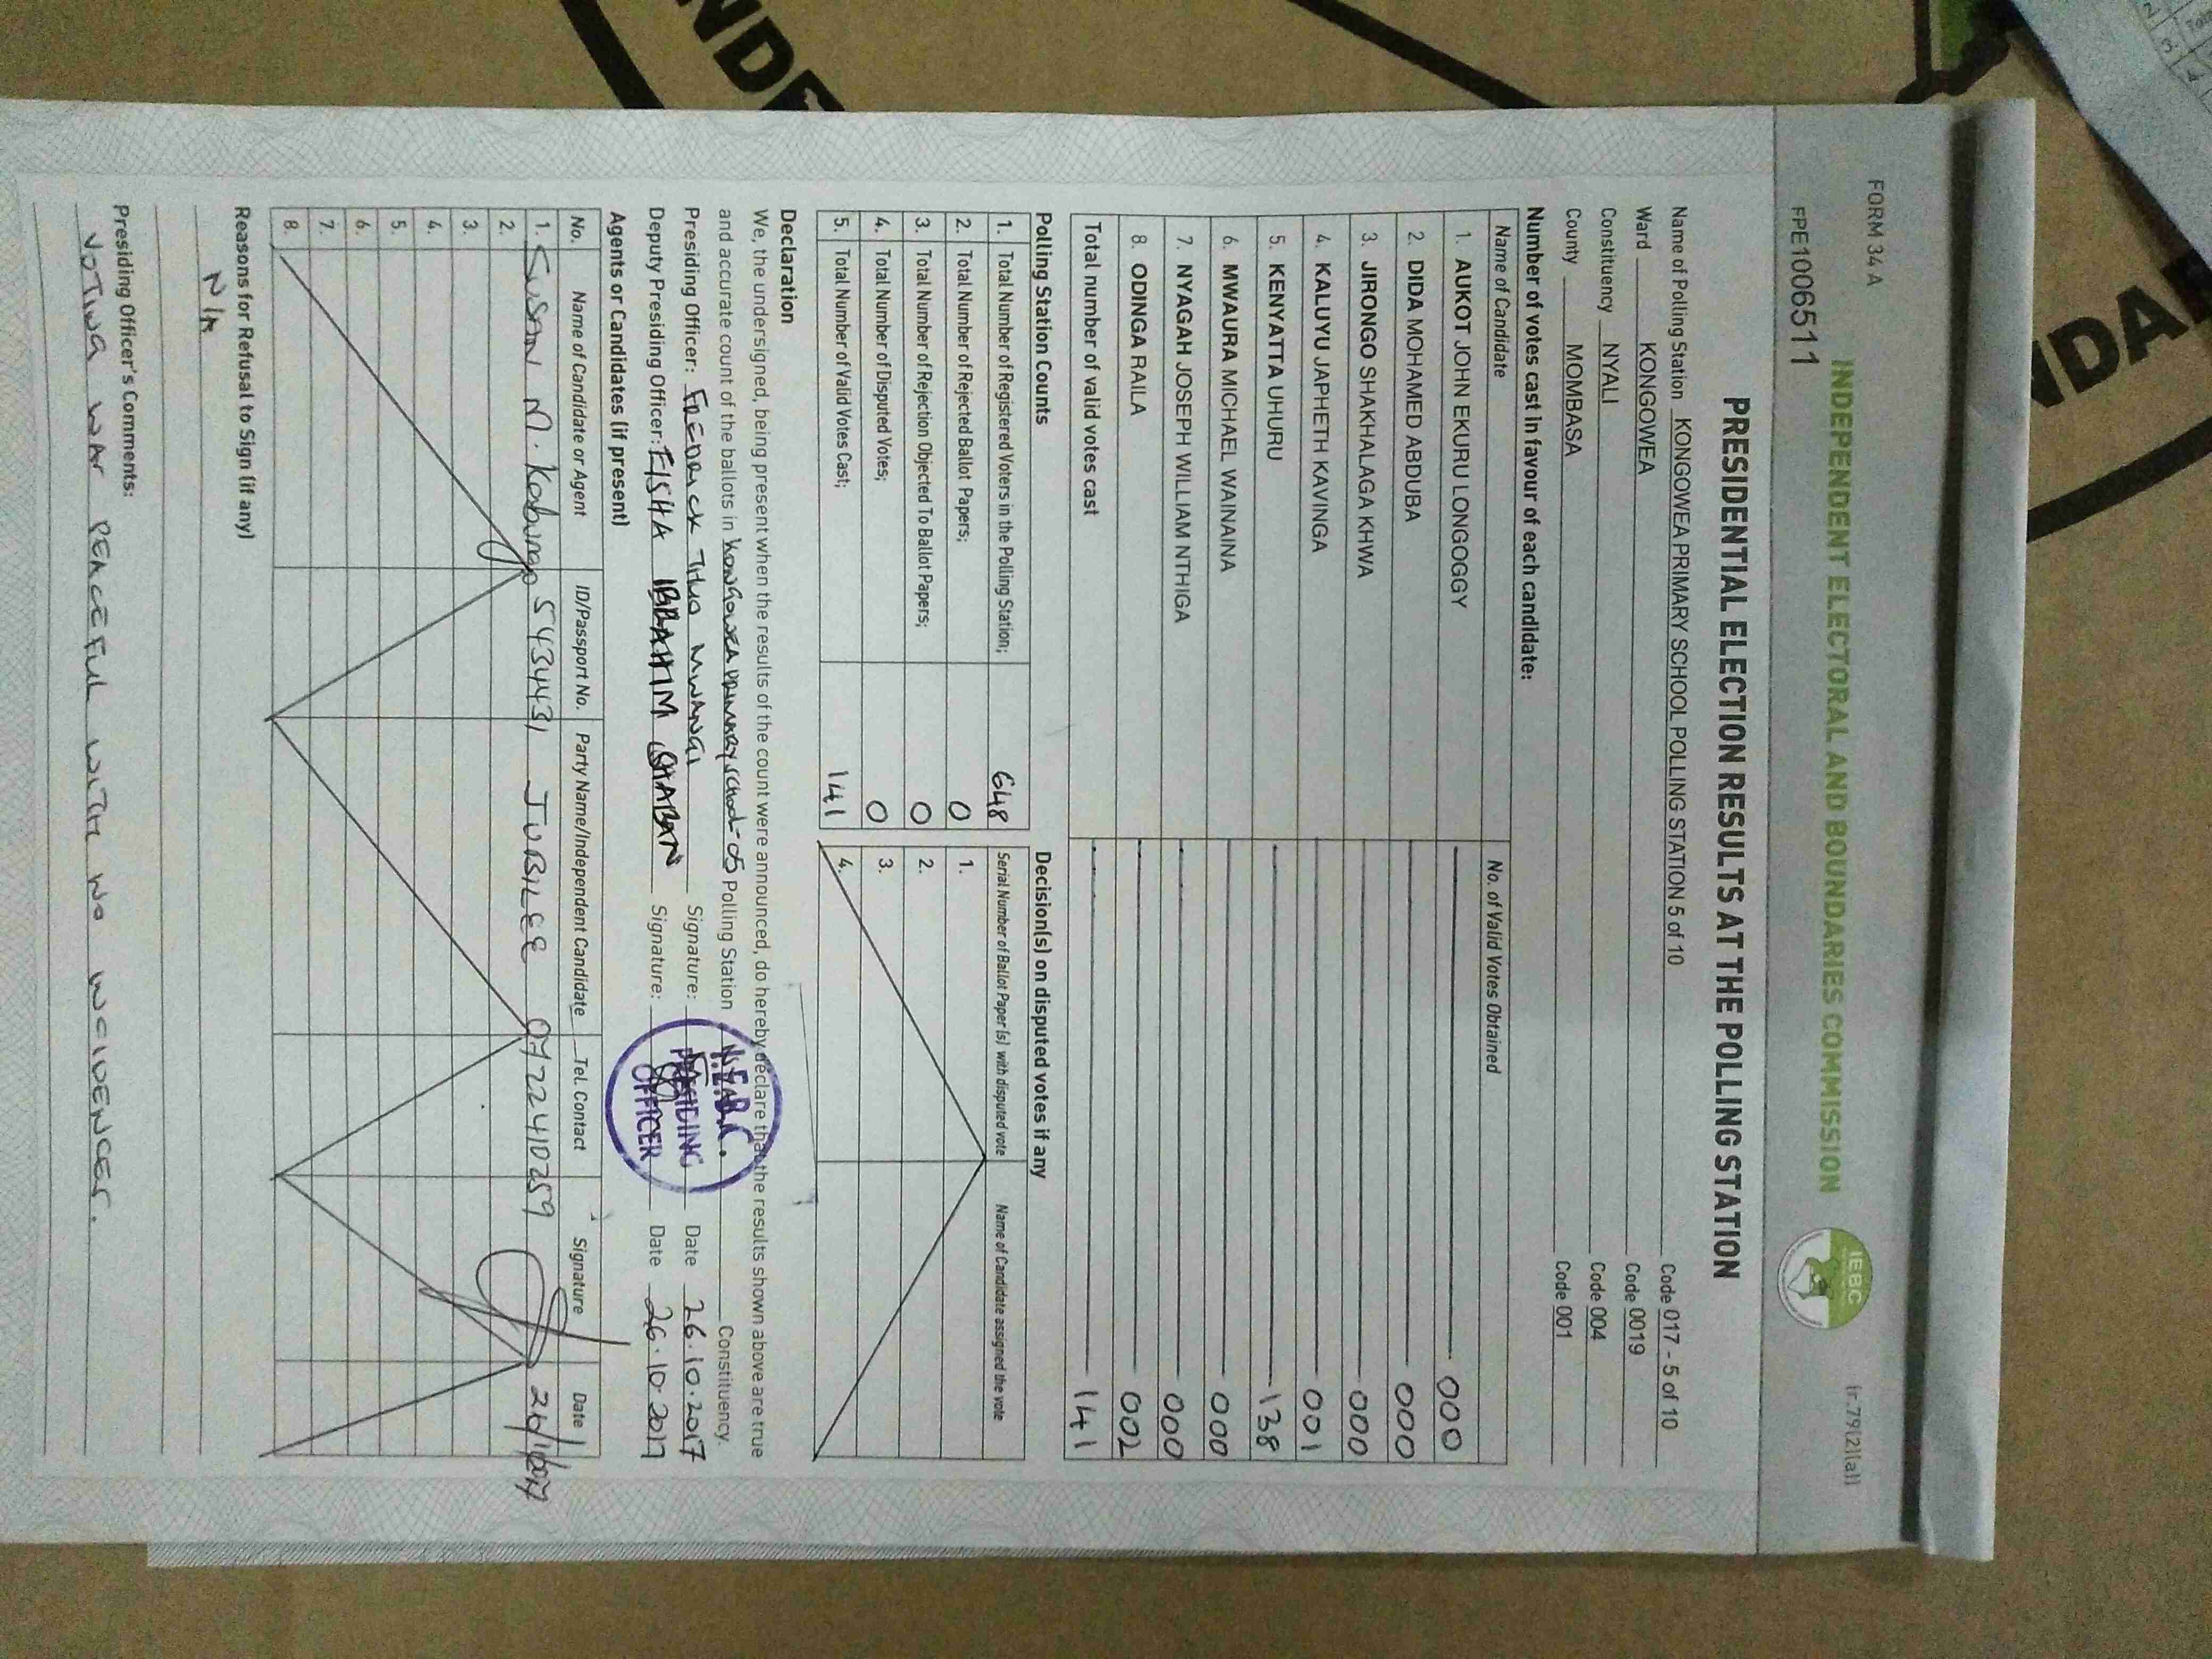 FORM 34 A
(r.79(2)(a))
INDEPENDENT ELECTORAL AND BOUNDARIES COMMISSION
IEBC
FPE1006511
PRESIDENTIAL ELECTION RESULTS AT THE POLLING STATION
Name of Polling Station KONGOWEA PRIMARY SCHOOL POLLING STATION 5 of 10 Code 017 - 5 of 10
Ward KONGOWEA Code 0019
Constituency NYALI Code 004
County MOMBASA Code 001
Number of votes cast in favour of each candidate:
Name of Candidate No. of Valid Votes Obtained
1. AUKOT JOHN EKURU LONGOGGY 000
2. DIDA MOHAMED ABDUBA 000
3. JIRONGO SHAKHALAGA KHWA 000
4. KALUYU JAPHETH KAVINGA 001
5. KENYATTA UHURU 138
6. MWAURA MICHAEL WAINAINA 000
7. NYAGAH JOSEPH WILLIAM NTHIGA 000
8. ODINGA RAILA 002
Total number of valid votes cast 141
Polling Station Counts
1. Total Number of Registered Voters in the Polling Station; 648
2. Total Number of Rejected Ballot Papers; 0
3. Total Number of Rejection Objected To Ballot Papers; 0
4. Total Number of Disputed Votes; 0
5. Total Number of Valid Votes Cast; 141
Decision(s) on disputed votes if any
Serial Number of Ballot Paper (s) with disputed vote Name of Candidate assigned the vote
1.
2.
3.
4.
Declaration
We, the undersigned, being present when the results of the count were announced, do hereby declare that the results shown above are true
and accurate count of the ballots in KONGOWEA PRIMARY SCHOOL-05 Polling Station Constituency.
Presiding Officer: FREDRICK TITUO MWANGI Signature: Date 26.10.2017
Deputy Presiding Officer: EISHA IBRAHIM SHABAN Signature: Date 26.10.2017
I.E.B.C.
PRESIDING
OFFICER
Agents or Candidates (if present)
No. Name of Candidate or Agent ID/Passport No. Party Name/Independent Candidate Tel. Contact Signature Date
1. SUSAN M. 5434431 JUBILEE 0722410259 26/10/2017
2.
3.
4.
5.
6.
7.
8.
Reasons for Refusal to Sign (if any)
N/A
Presiding Officer's Comments:
VOTING WAS PEACEFUL WITH NO INCIDENCES.